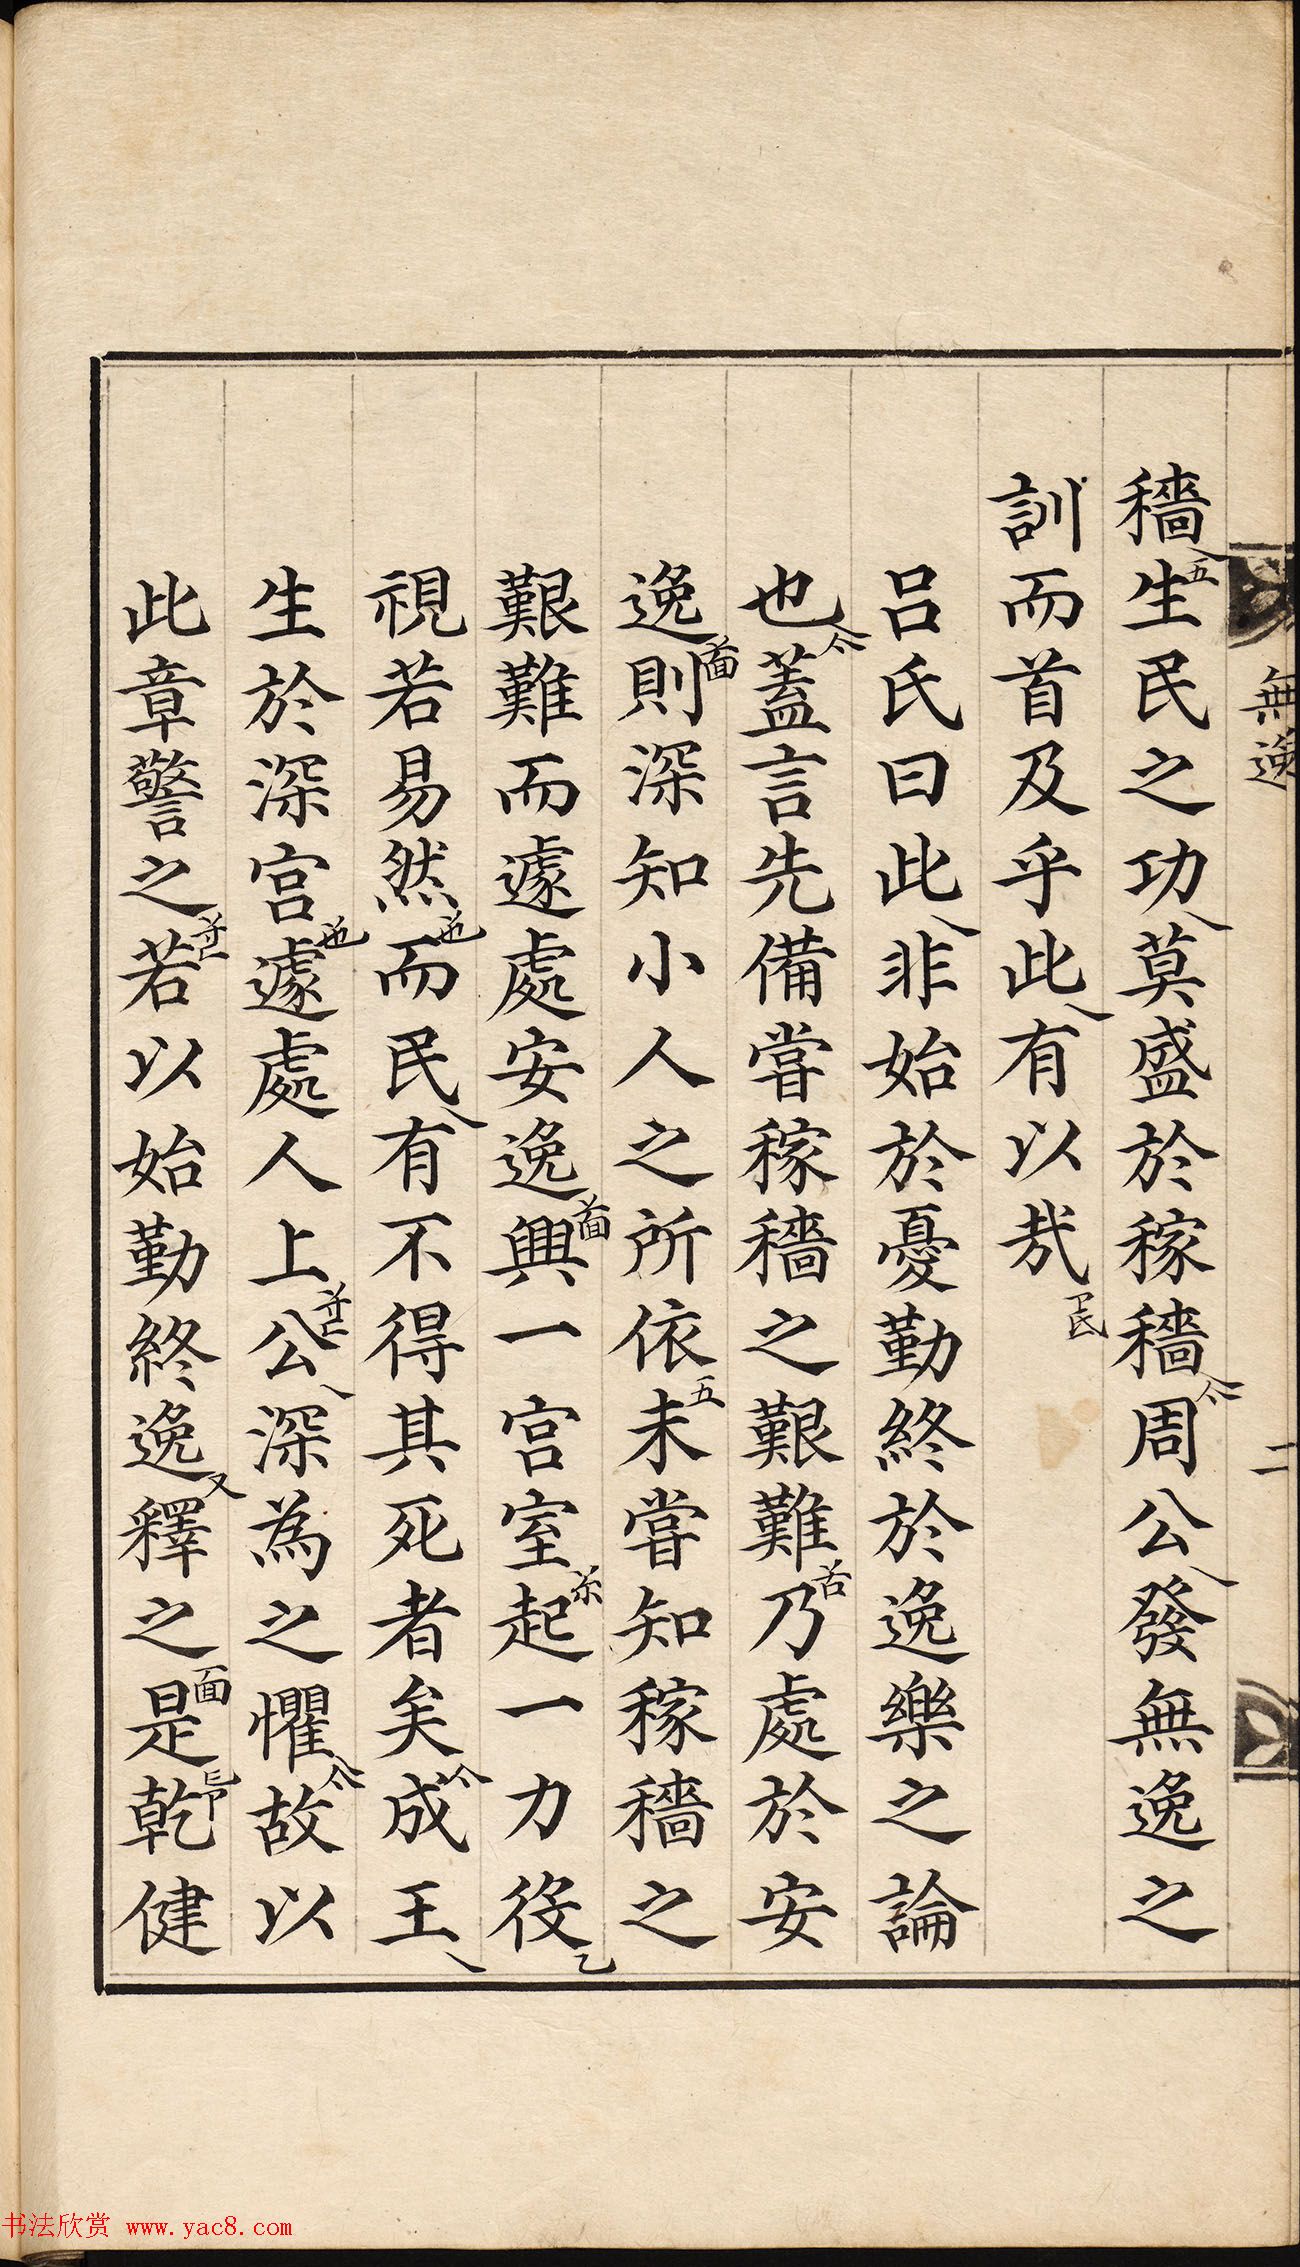 穡生民之功莫盛於稼穡周公發無逸之
訓而首及乎此有以哉
呂氏曰此非始於憂勤終於逸樂之論
也蓋言先備嘗稼穡之艱難乃處於安
逸則深知小人之所依未嘗知稼穡之
艱難而遽處安逸興一宮室起一力役
視若易然而民有不得其死者矣成王
生於深宮遽處人上公深為之懼故以
此章警之若以始勤終逸釋之是乾健
無逸
二
书法欣赏 www.yac8.com